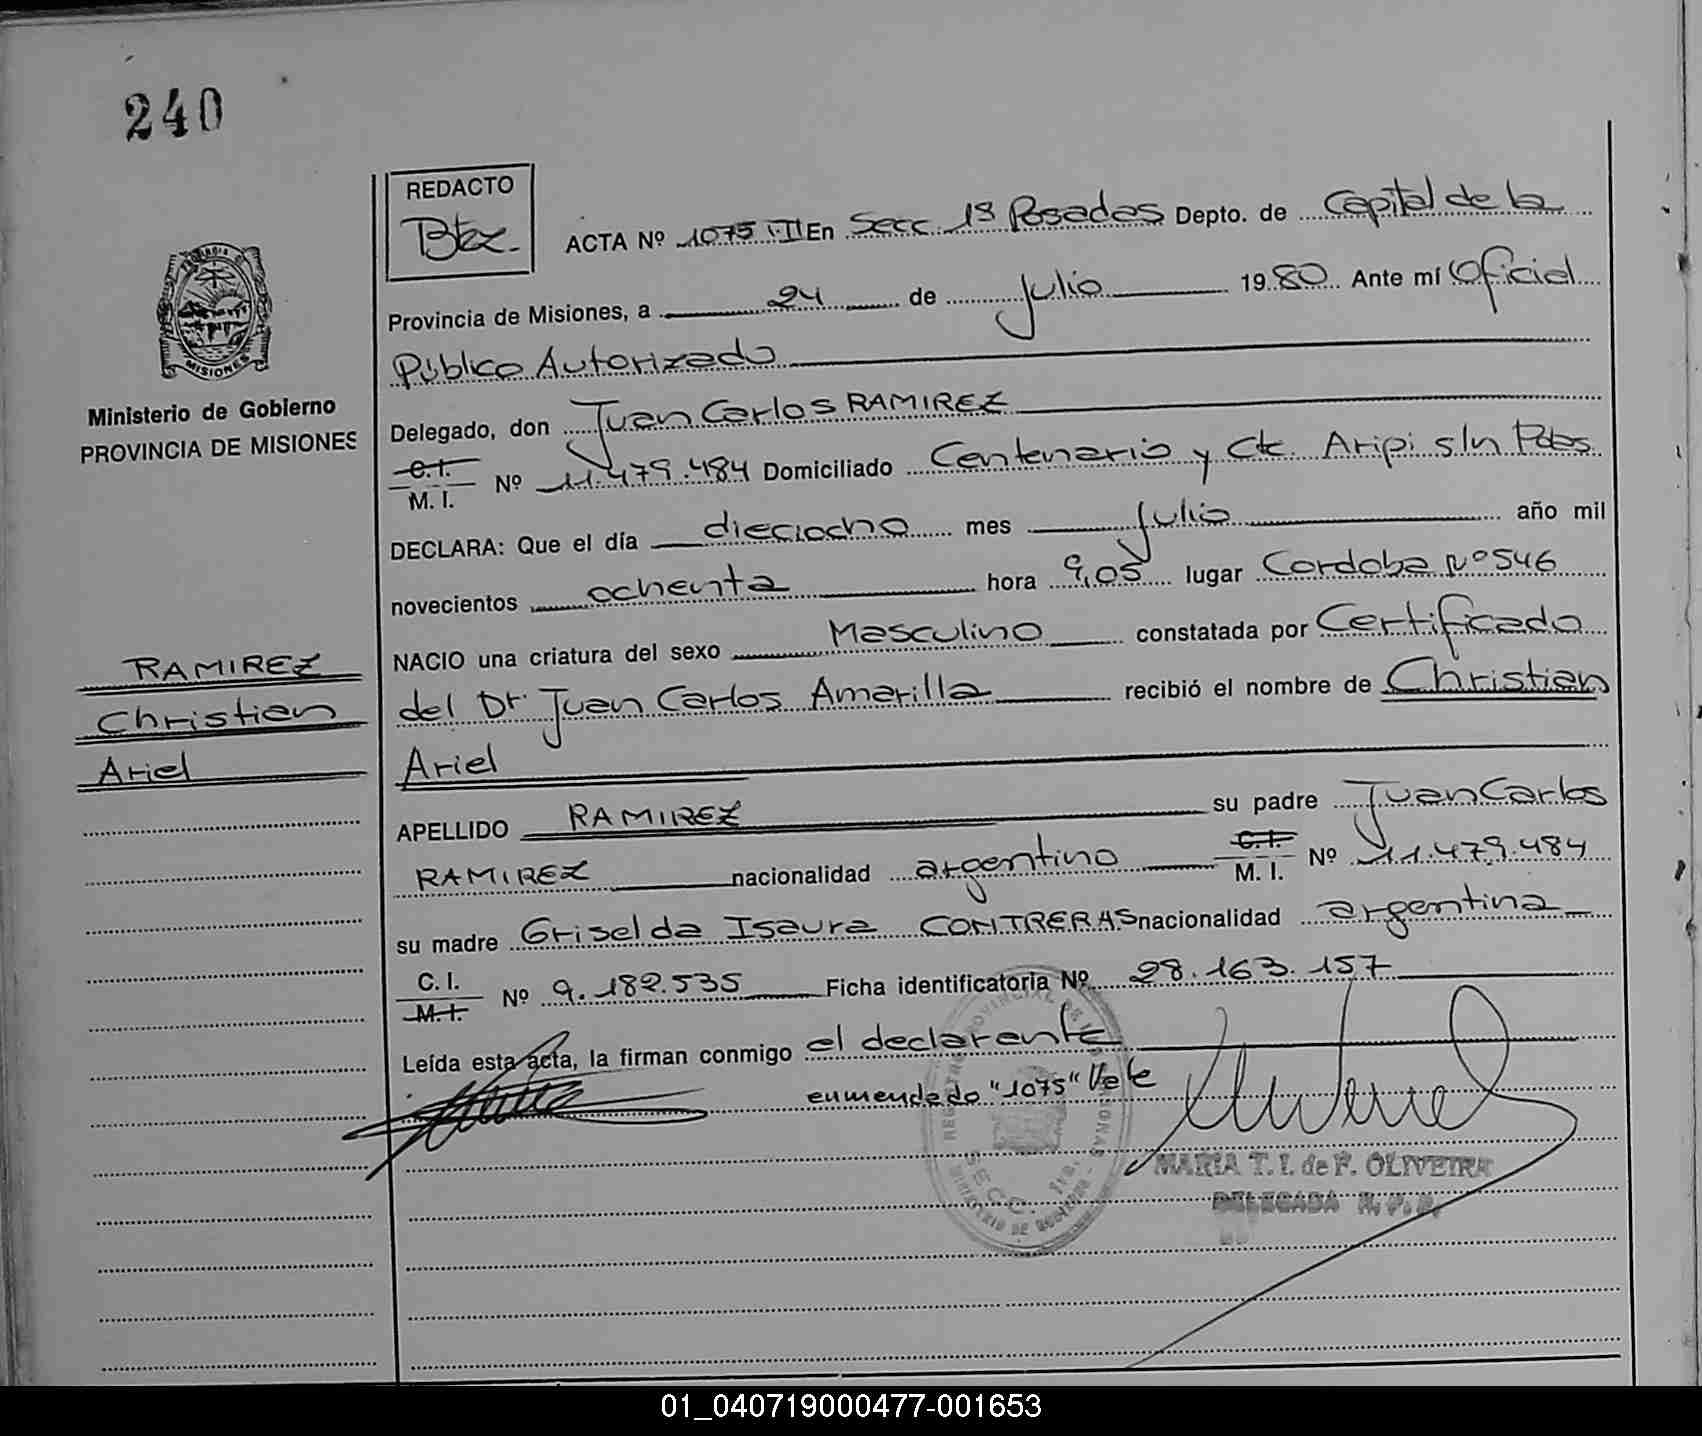 240
REDACTO
Btez.
ACTA Nº 1075 T.II En Secc. 1ª Posadas Depto. de Capital de la
Provincia de Misiones, a 24 de julio 1980 Ante mí Oficial
Público Autorizado
Delegado, don Juan Carlos RAMIREZ
C.I.
M. I. Nº 11.479.484 Domiciliado Centenario y Ctte. Aripi s/n Pdas.
DECLARA: Que el día dieciocho mes julio año mil
novecientos ochenta hora 9,05 lugar Cordoba Nº 546
NACIO una criatura del sexo Masculino constatada por Certificado
del Dr. Juan Carlos Amarilla recibió el nombre de Christian
Ariel
APELLIDO RAMIREZ su padre Juan Carlos
RAMIREZ nacionalidad argentino C.I. M. I. Nº 11.479.484
su madre Griselda Isaura CONTRERAS nacionalidad argentina
C. I.
M.I. Nº 9.182.535 Ficha identificatoria Nº 28.163.157
Leída esta acta, la firman conmigo el declarante
enmendado "1075" Vale
MARIA T. I. de F. OLIVEIRA
DELEGADA R. P. P.
SECC. 1ra.
MINISTERIO DE GOBIERNO
PROVINCIA DE
MISIONES
Ministerio de Gobierno
PROVINCIA DE MISIONES
RAMIREZ
Christian
Ariel
01_040719000477-001653